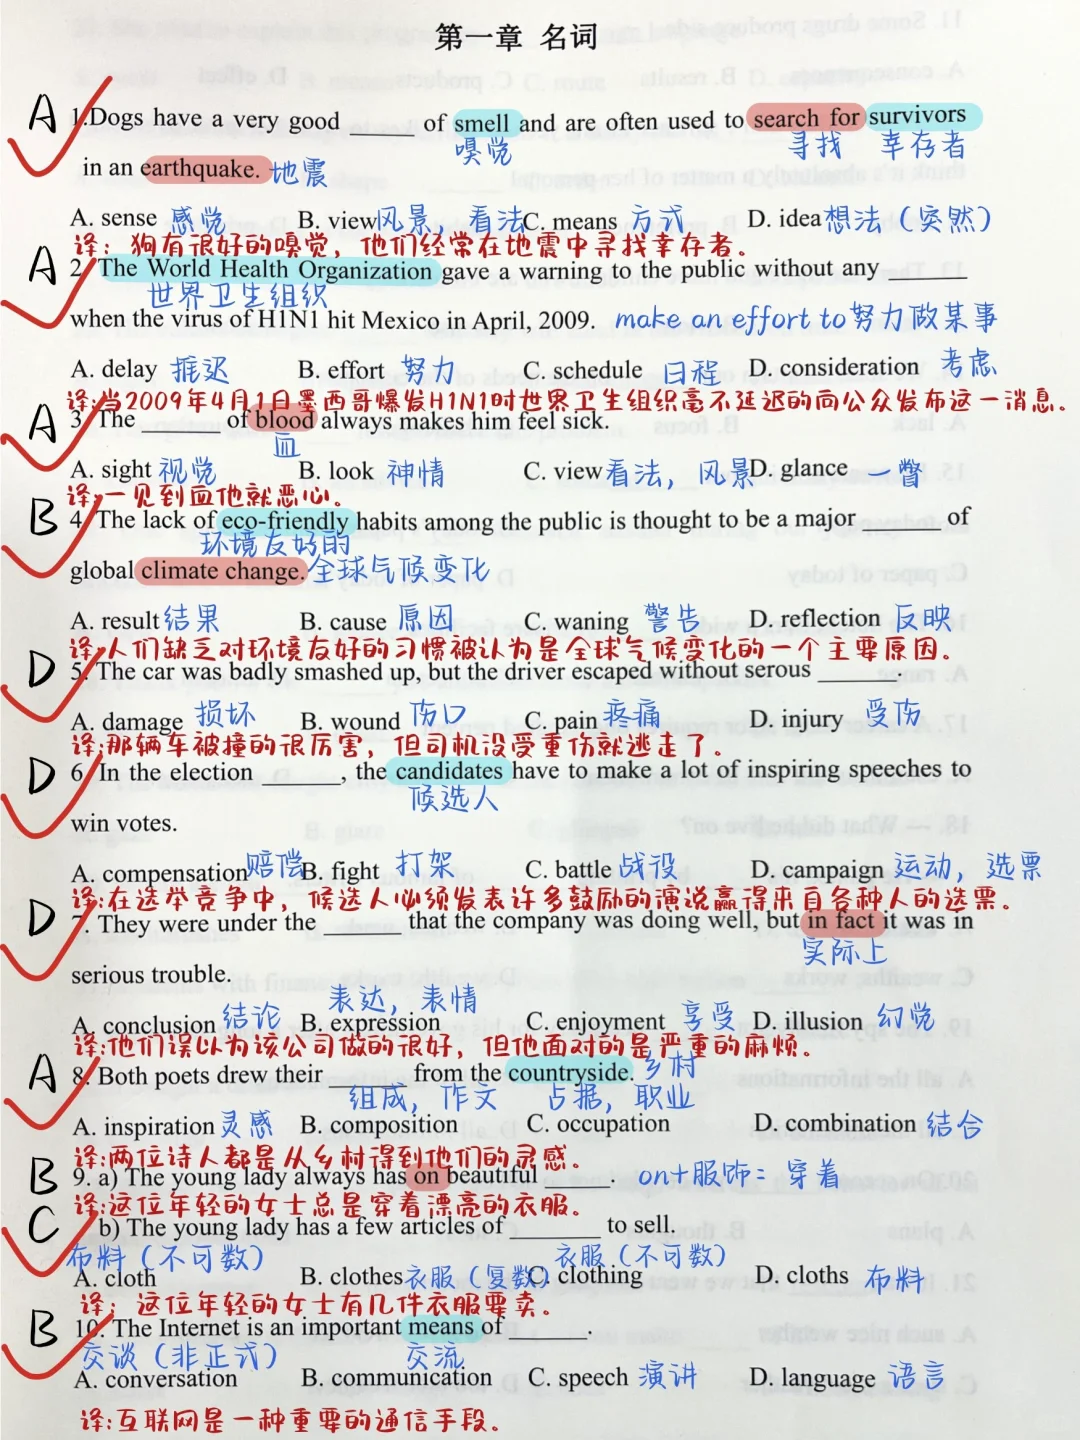 第一章 名词
A 1.Dogs have a very good ______ of smell and are often used to search for survivors
嗅觉 寻找 幸存者
in an earthquake. 地震
A. sense 感觉 B. view 风景 看法 C. means 方式 D. idea 想法（突然）
译：狗有很好的嗅觉，他们经常在地震中寻找幸存者。
A 2. The World Health Organization gave a warning to the public without any ______
世界卫生组织
when the virus of H1N1 hit Mexico in April, 2009. make an effort to 努力做某事
A. delay 推迟 B. effort 努力 C. schedule 日程 D. consideration 考虑
译:当2009年4月1日墨西哥爆发H1N1时世界卫生组织毫不延迟的向公众发布这一消息。
A 3. The ______ of blood always makes him feel sick.
血
A. sight 视觉 B. look 神情 C. view 看法，风景 D. glance 一瞥
译:一见到血他就恶心。
B 4. The lack of eco-friendly habits among the public is thought to be a major ______ of
环境友好的
global climate change. 全球气候变化
A. result 结果 B. cause 原因 C. waning 警告 D. reflection 反映
译:人们缺乏对环境友好的习惯被认为是全球气候变化的一个主要原因。
D 5. The car was badly smashed up, but the driver escaped without serous ______.
A. damage 损坏 B. wound 伤口 C. pain 疼痛 D. injury 受伤
译:那辆车被撞的很厉害，但司机没受重伤就逃走了。
D 6. In the election ______, the candidates have to make a lot of inspiring speeches to
候选人
win votes.
A. compensation 赔偿 B. fight 打架 C. battle 战役 D. campaign 运动，选票
译:在选举竞争中，候选人必须发表许多鼓励的演说赢得来自各种人的选票。
D 7. They were under the ______ that the company was doing well, but in fact it was in
实际上
serious trouble.
表达，表情
A. conclusion 结论 B. expression C. enjoyment 享受 D. illusion 幻觉
译:他们误以为该公司做的很好，但他面对的是严重的麻烦。
A 8. Both poets drew their ______ from the countryside. 乡村
组成，作文 占据，职业
A. inspiration 灵感 B. composition C. occupation D. combination 结合
译:两位诗人都是从乡村得到他们的灵感。
B 9. a) The young lady always has on beautiful ______. on+服饰：穿着
译:这位年轻的女士总是穿着漂亮的衣服。
C b) The young lady has a few articles of ______ to sell.
布料（不可数） 衣服（不可数）
A. cloth B. clothes 衣服（复数） C. clothing D. cloths 布料
译：这位年轻的女士有几件衣服要卖。
B 10. The Internet is an important means of ______.
交谈（非正式） 交流
A. conversation B. communication C. speech 演讲 D. language 语言
译:互联网是一种重要的通信手段。